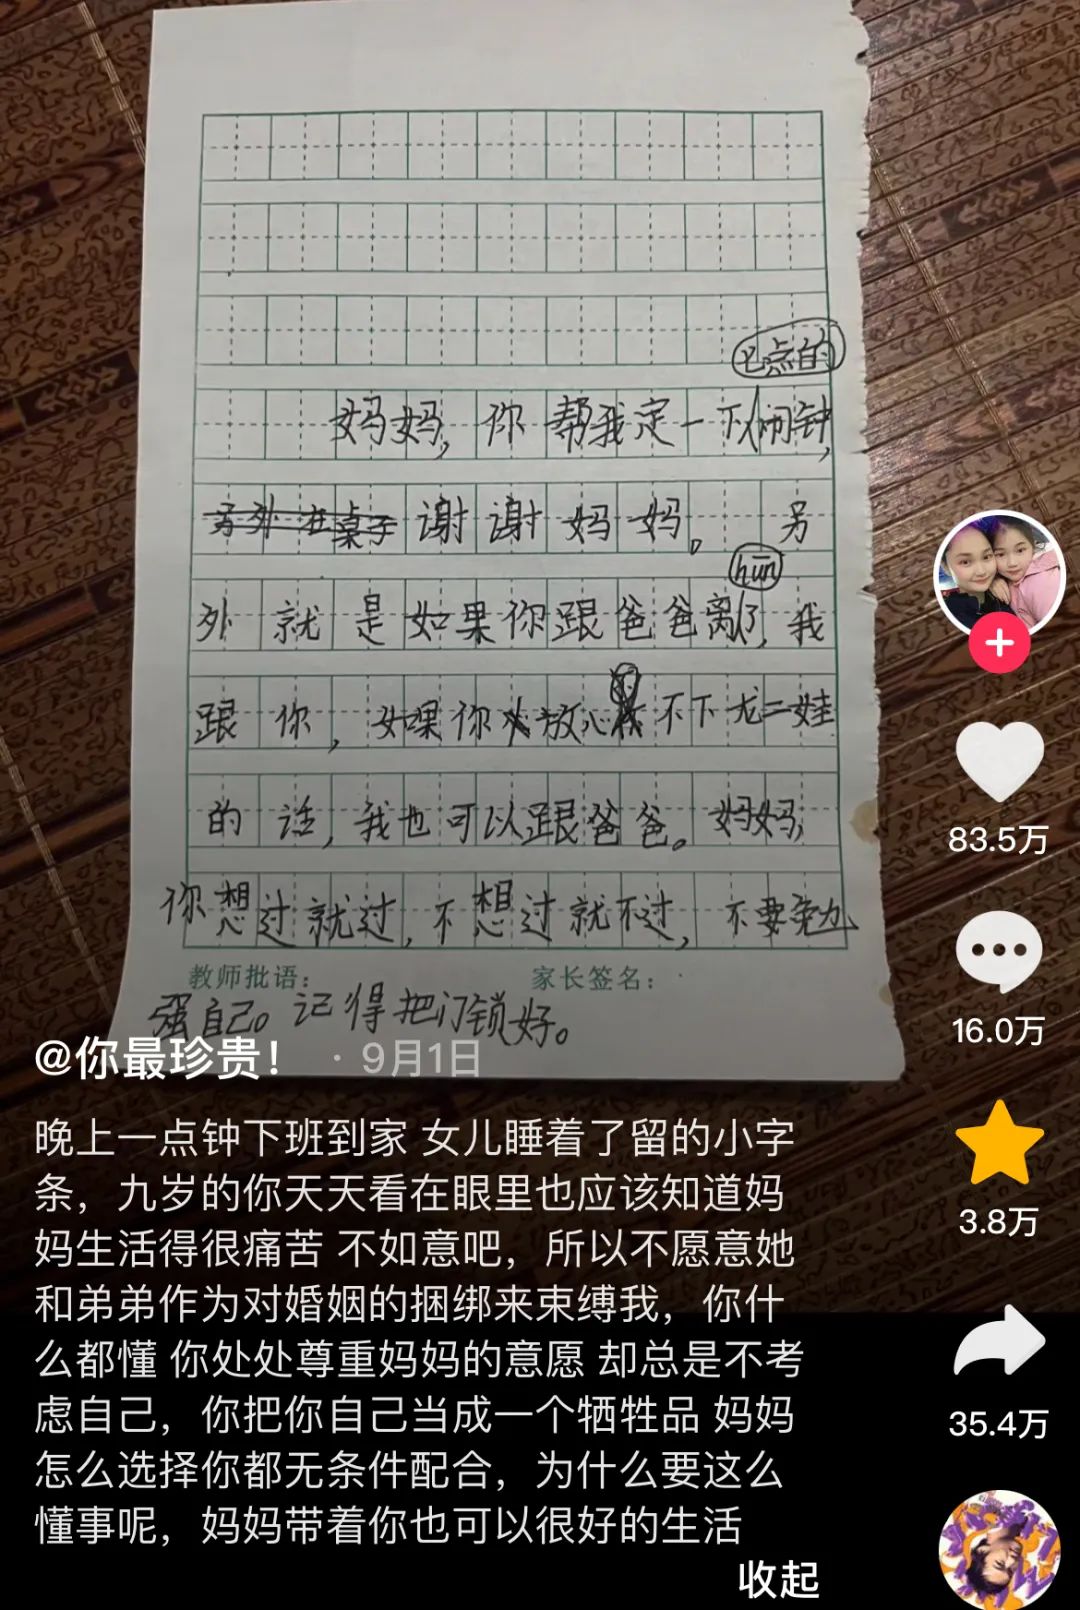 七点的
妈妈，你帮我定一下闹钟，
另外在桌子谢谢妈妈。另
hūn
外就是如果你跟爸爸离了，我
跟你，如果你放心不下龙二娃
的话，我也可以跟爸爸。妈妈，
你想过就过，不想过就不过，不要勉
教师批语：
家长签名：
强自己。记得把门锁好。
@你最珍贵！ · 9月1日
晚上一点钟下班到家 女儿睡着了留的小字
条，九岁的你天天看在眼里也应该知道妈
妈生活得很痛苦 不如意吧，所以不愿意她
和弟弟作为对婚姻的捆绑来束缚我，你什
么都懂 你处处尊重妈妈的意愿 却总是不考
虑自己，你把你自己当成一个牺牲品 妈妈
怎么选择你都无条件配合，为什么要这么
懂事呢，妈妈带着你也可以很好的生活
收起
83.5万
16.0万
3.8万
35.4万